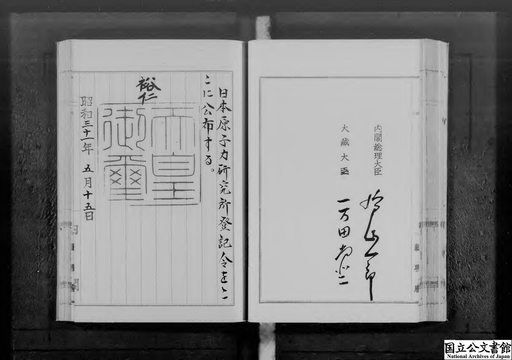 内閣総理大臣
鳩山一郎
大蔵大臣
一万田尚登
日本原子力研究所登記令をこ
こに公布する。
裕仁
天皇
御璽
昭和三十一年五月十五日
国立公文書館
National Archives of Japan